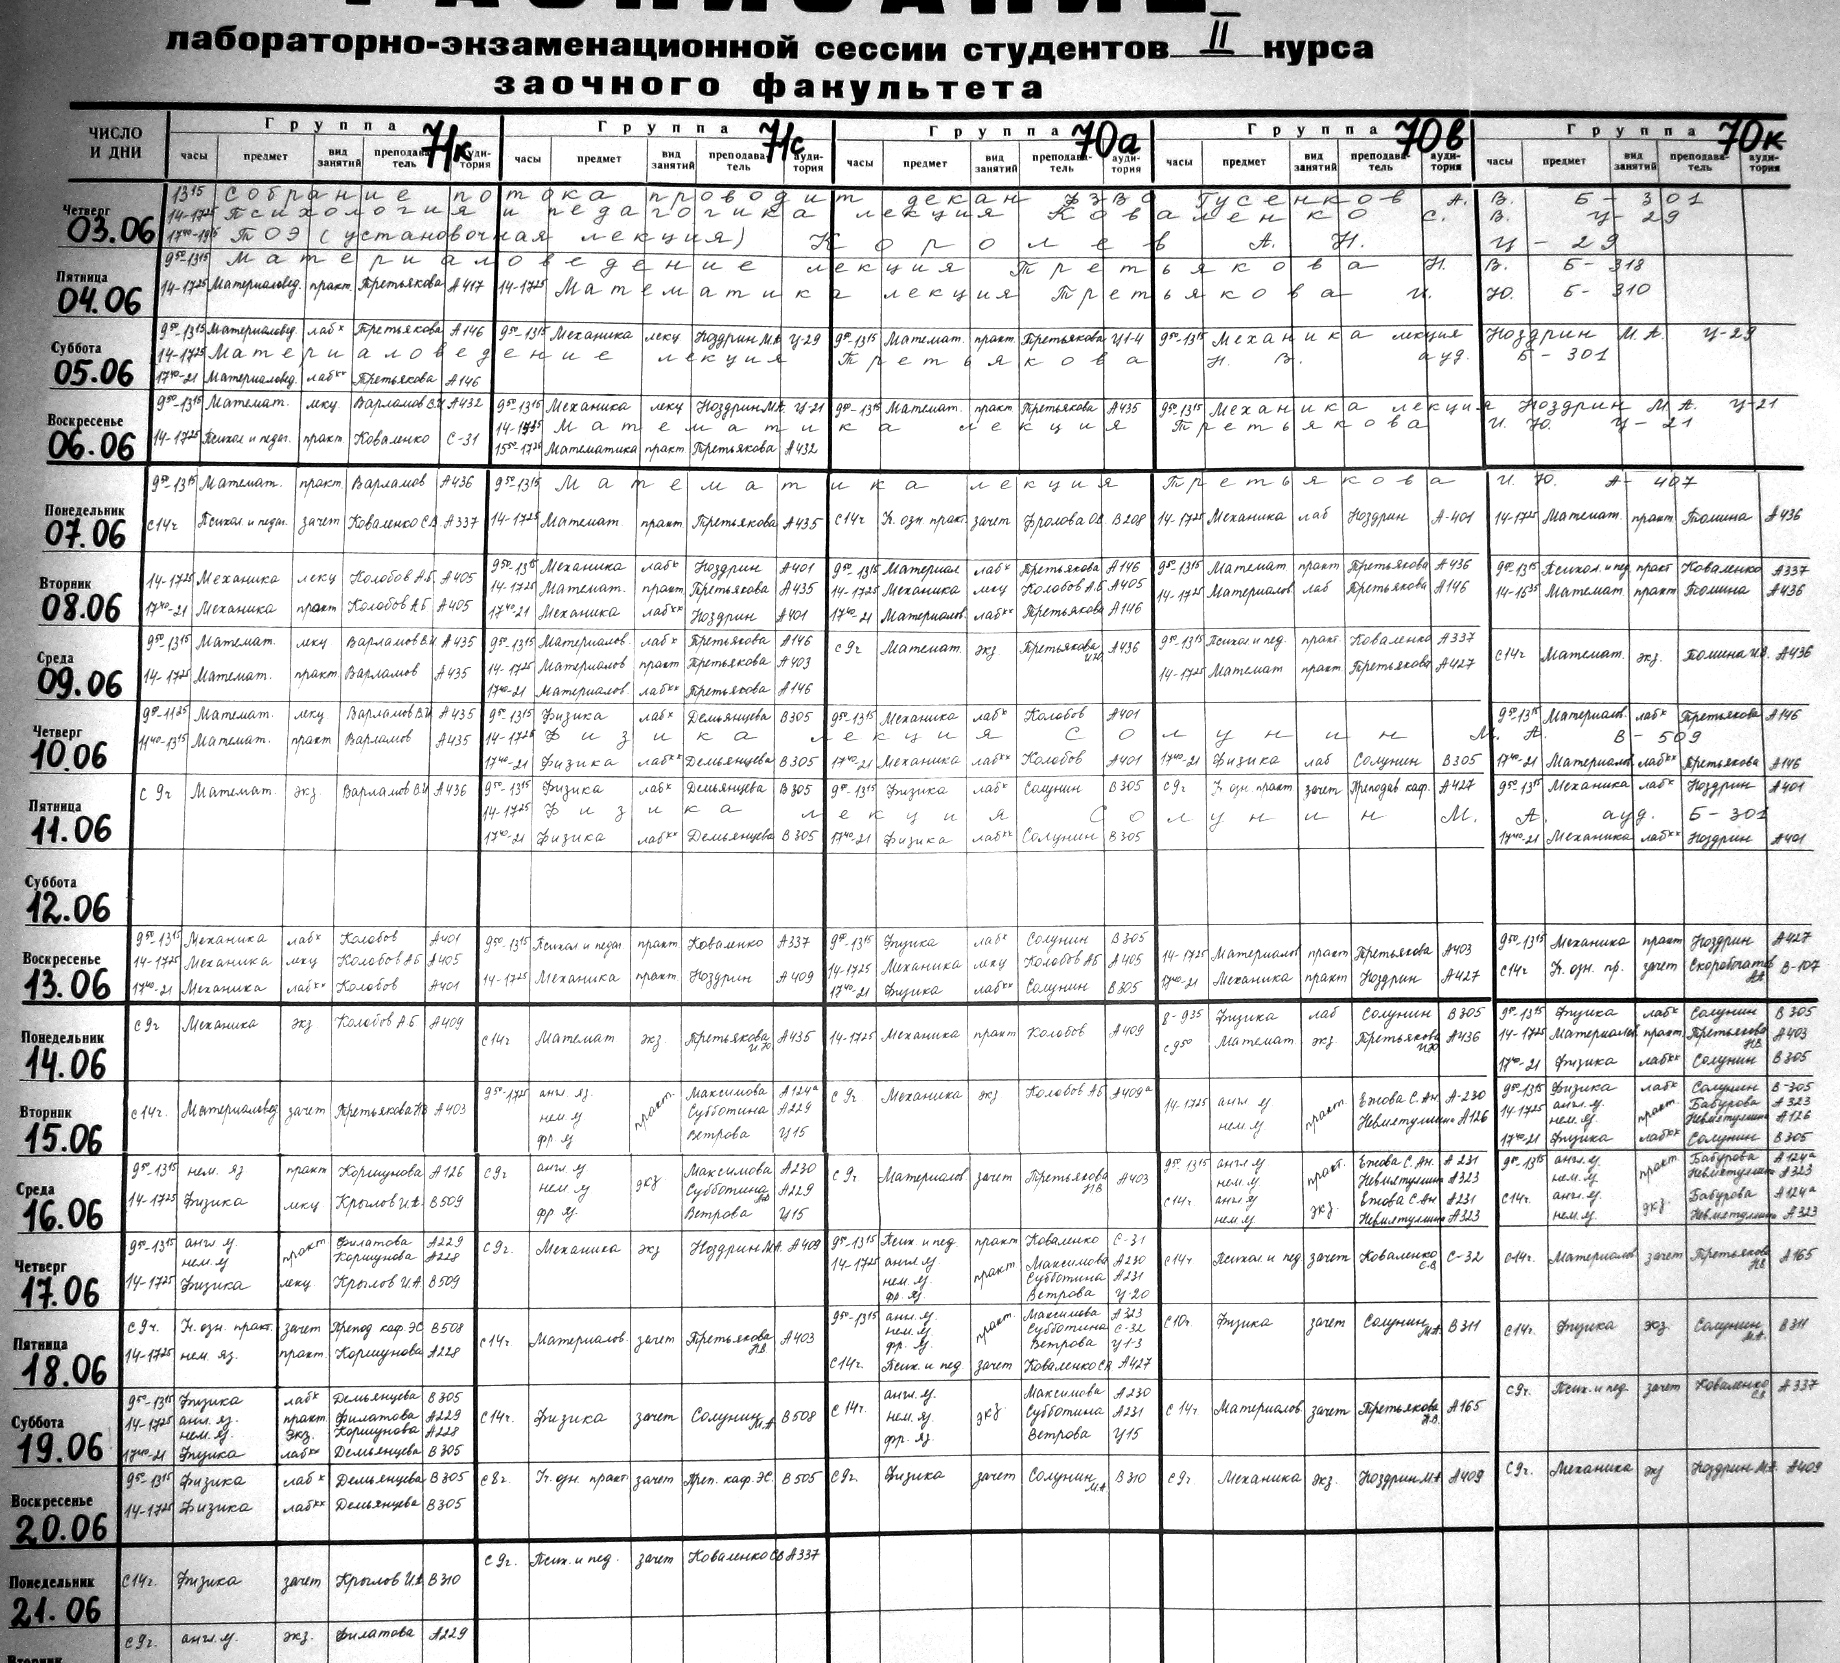 РАСПИСАНИЕ
лабораторно-экзаменационной сессии студентов II курса
заочного факультета
ЧИСЛО И ДНИ
Группа 71к Группа 71с Группа 70а Группа 70в Группа 70к
часы предмет вид занятий преподаватель аудитория часы предмет вид занятий преподаватель аудитория часы предмет вид занятий преподаватель аудитория часы предмет вид занятий преподаватель аудитория часы предмет вид занятий преподаватель аудитория
Четверг 03.06
13 15 собрание потока проводит декан ФЗВО Гусенков А. В. Б-301
14-17 25 Психология и педагогика лекция Коваленко С. В. Ц-29
17 40-19 15 ТОЭ (установочная лекция) Королев А. Н. Ц-29
Пятница 04.06
9 50-13 15 Материаловедение лекция Третьякова Н. В. Б-318
14-17 25 Материаловед. практ. Третьякова А417 14-17 25 Математика лекция Третьякова И. Ю. Б-310
Суббота 05.06
9 50-13 15 Материаловед. лаб х Третьякова А146 9 50-13 15 Механика лекц Ноздрин М.А. Ц-29 9 50-13 15 Математ. практ. Третьякова Ц1-4 9 50-13 15 Механика лекция Ноздрин М.А. Ц-29
14-17 25 Материаловедение лекция Третьякова Н. В. ауд. Б-301
17 40-21 Материаловед. лаб хх Третьякова А146
Воскресенье 06.06
9 50-13 15 Математ. лекц. Варламов В.И А432 9 50-13 15 Механика лекц Ноздрин М.А. Ц-21 9 50-13 15 Математ. практ Третьякова А435 9 50-13 15 Механика лекция Ноздрин М.А. Ц-21
14-17 25 Психол и педаг. практ. Коваленко С-31 Математика лекция Третьякова И. Ю. Ц-21
15 50-17 25 Математика практ Третьякова А432
Понедельник 07.06
9 50-13 15 Математ. практ. Варламов А436 9 50-13 15 Математика лекция Третьякова И. Ю. А-407
с14ч Психол и педаг. зачет Коваленко С.В А337 14-17 25 Математ практ. Третьякова А435 с14ч К. озн практ. зачет Фролова О.В В208 14-17 25 Механика лаб Ноздрин А-401 14-17 25 Математ. практ Томина А436
Вторник 08.06
9 50-13 15 Механика лаб х Ноздрин А401 9 50-13 15 Материал лаб х Третьякова А146 9 50-13 15 Математ практ Третьякова А436 9 50-13 15 Психол. и пед. практ Коваленко А337
14-17 25 Механика лекц Колобов А.Б. А405 14-17 25 Математ. практ. Третьякова А435 14-17 25 Механика лекц Колобов А.Б А405 14-17 25 Материалов. лаб Третьякова А146 14-15 35 Математ. практ Томина А436
17 40-21 Механика практ Колобов А.Б А405 17 40-21 Механика лаб хх Ноздрин А401 17 40-21 Материалов лаб хх Третьякова А146
Среда 09.06
9 50-13 15 Математ. лекц Варламов В.И. А435 9 50-13 15 Материалов. лаб х Третьякова А146 с 9г Математ. экз Третьякова И.Ю. А436 9 50-13 15 Психол и пед. практ. Коваленко А337 с14ч Математ. экз. Томина И.В. А436
14-17 25 Математ. практ. Варламов А435 14-17 25 Материалов практ Третьякова А403 14-17 25 Математ практ. Третьякова А427
17 40-21 Материалов. лаб хх Третьякова А146
Четверг 10.06
9 50-11 25 Математ. лекц Варламов В.И А435 9 50-13 15 Физика лаб х Демьянцева В305 9 50-13 15 Механика лаб х Колобов А401 9 50-13 15 Материалов. лаб х Третьякова А146
11 40-13 15 Математ. практ Варламов А435 14-17 25 Физика лекция Солунин М. А. В-509
17 40-21 Физика лаб хх Демьянцева В305 17 40-21 Механика лаб хх Колобов А401 17 40-21 Физика лаб Солунин В305 17 40-21 Материалов лаб хх Третьякова А146
Пятница 11.06
с 9г Математ. экз. Варламов В.И А436 9 50-13 15 Физика лаб х Демьянцева В305 9 50-13 15 Физика лаб х Солунин В305 с9г К озн. практ зачет Преподав каф. А427 9 50-13 15 Механика лаб х Ноздрин А401
14-17 25 Физика лекция Солунин М. А. ауд. Б-301
17 40-21 Физика лаб хх Демьянцева В305 17 40-21 Физика лаб хх Солунин В305 17 40-21 Механика лаб хх Ноздрин А401
Суббота 12.06
Воскресенье 13.06
9 50-13 15 Механика лаб х Колобов А401 9 50-13 15 Психол и педаг практ Коваленко А337 9 50-13 15 Физика лаб х Солунин В305 9 50-13 15 Механика практ Ноздрин А427
14-17 25 Механика лекц Колобов А.Б А405 14-17 25 Механика практ. Ноздрин А409 14-17 25 Механика лекц Колобов А.Б А405 14-17 25 Материалов практ Третьякова А403 с14ч К. озн. пр. зачет Скоробогатов В-107
17 40-21 Механика лаб хх Колобов А401 17 40-21 Физика лаб хх Солунин В305 17 40-21 Механика практ Ноздрин А427
Понедельник 14.06
с 9г Механика экз Колобов А.Б А409 с14ч Математ экз. Третьякова И.Ю А435 14-17 25 Механика практ Колобов А409 8-9 35 Физика лаб Солунин В305 9 50-13 15 Физика лаб х Солунин В305
с9 50 Математ экз. Третьякова И.Ю А436 14-17 25 Материалов практ. Третьякова Н.В. А403
17 40-21 Физика лаб хх Солунин В305
Вторник 15.06
с14ч. Материаловед зачет Третьякова Н.В А403 9 50-17 25 англ. яз. практ. Максимова А124а с 9г Механика экз Колобов А.Б А409а 14-17 25 англ. яз практ. Ежова С.Ан. А-230 9 50-13 15 Физика лаб х Солунин В-305
нем. яз Субботина А229 нем. яз А126 14-17 25 англ. яз. практ. Бабурова А323
фр. яз Ветрова Ц15 нем. яз. А126
17 40-21 Физика лаб хх Солунин В305
Среда 16.06
9 50-13 15 нем. яз практ Коршунова А126 с9г англ. яз экз Максимова А230 с 9г Материалов зачет Третьякова Н.В А403 9 50-13 15 англ яз практ. Ежова С.Ан. А231 9 50-13 15 англ. яз. практ. Бабурова А124а
нем. яз Субботина А229 нем. яз А323 нем. яз А323
14-17 25 Физика лекц Крылов И.А. В509 фр яз. Ветрова Ц15 с14г. англ яз экз. Ежова С.Ан А231 с14г. англ. яз. экз. Бабурова А124а
нем. яз А323 нем. яз А323
Четверг 17.06
9 50-13 15 англ яз. практ Филатова А229 с9г. Механика экз Ноздрин М.А. А409 9 50-13 15 Псих. и пед. практ Коваленко С-31 с14ч Психол и пед зачет Коваленко С.В С-32 с14ч. Материалов зачет Третьякова Н.В А165
нем. яз Коршунова А228 14-17 25 англ яз. практ Максимова А230
14-17 25 Физика лекц Крылов И.А. В509 нем. яз. Субботина А231
фр. яз. Ветрова Ц-20
Пятница 18.06
с 9ч. К. озн. практ. зачет Препод каф. ЭС В508 с14ч Материалов. зачет Третьякова Н.В. А403 9 50-13 15 англ. яз. практ. Максимова А323 с10г. Физика зачет Солунин М.А. В311 с14г. Физика экз. Солунин М.А. В311
нем. яз Субботина С-32
14-17 25 нем. яз. практ. Коршунова А228 фр. яз. Ветрова Ц1-3
с14г. Псих. и пед зачет Коваленко С.В А427
Суббота 19.06
9 50-13 15 Физика лаб х Демьянцева В305 с14г. Физика зачет Солунин М.А В508 с 14г. англ. яз. экз Максимова А230 с 14г Материалов зачет Третьякова Н.В. А165 с9г. Псих. и пед. зачет Коваленко С.В. А337
14-17 25 англ. яз. практ. Филатова А229 нем. яз. Субботина А231
нем. яз. экз. Коршунова А228 фр. яз. Ветрова Ц15
17 40-21 Физика лаб хх Демьянцева В305
Воскресенье 20.06
9 50-13 15 Физика лаб х Демьянцева В305 с8г. К. озн. практ. зачет Преп. каф. ЭС. В505 с9г. Физика зачет Солунин М.А В310 с9г. Механика экз. Ноздрин М.А А409 с9г. Механика экз Ноздрин М.А. А409
14-17 25 Физика лаб хх Демьянцева В305
Понедельник 21.06
с 9г. Псих. и пед. зачет Коваленко СВ А337
с14г. Физика зачет Крылов И.А В310
с 9г. англ. яз. экз. Филатова А229
Вторник